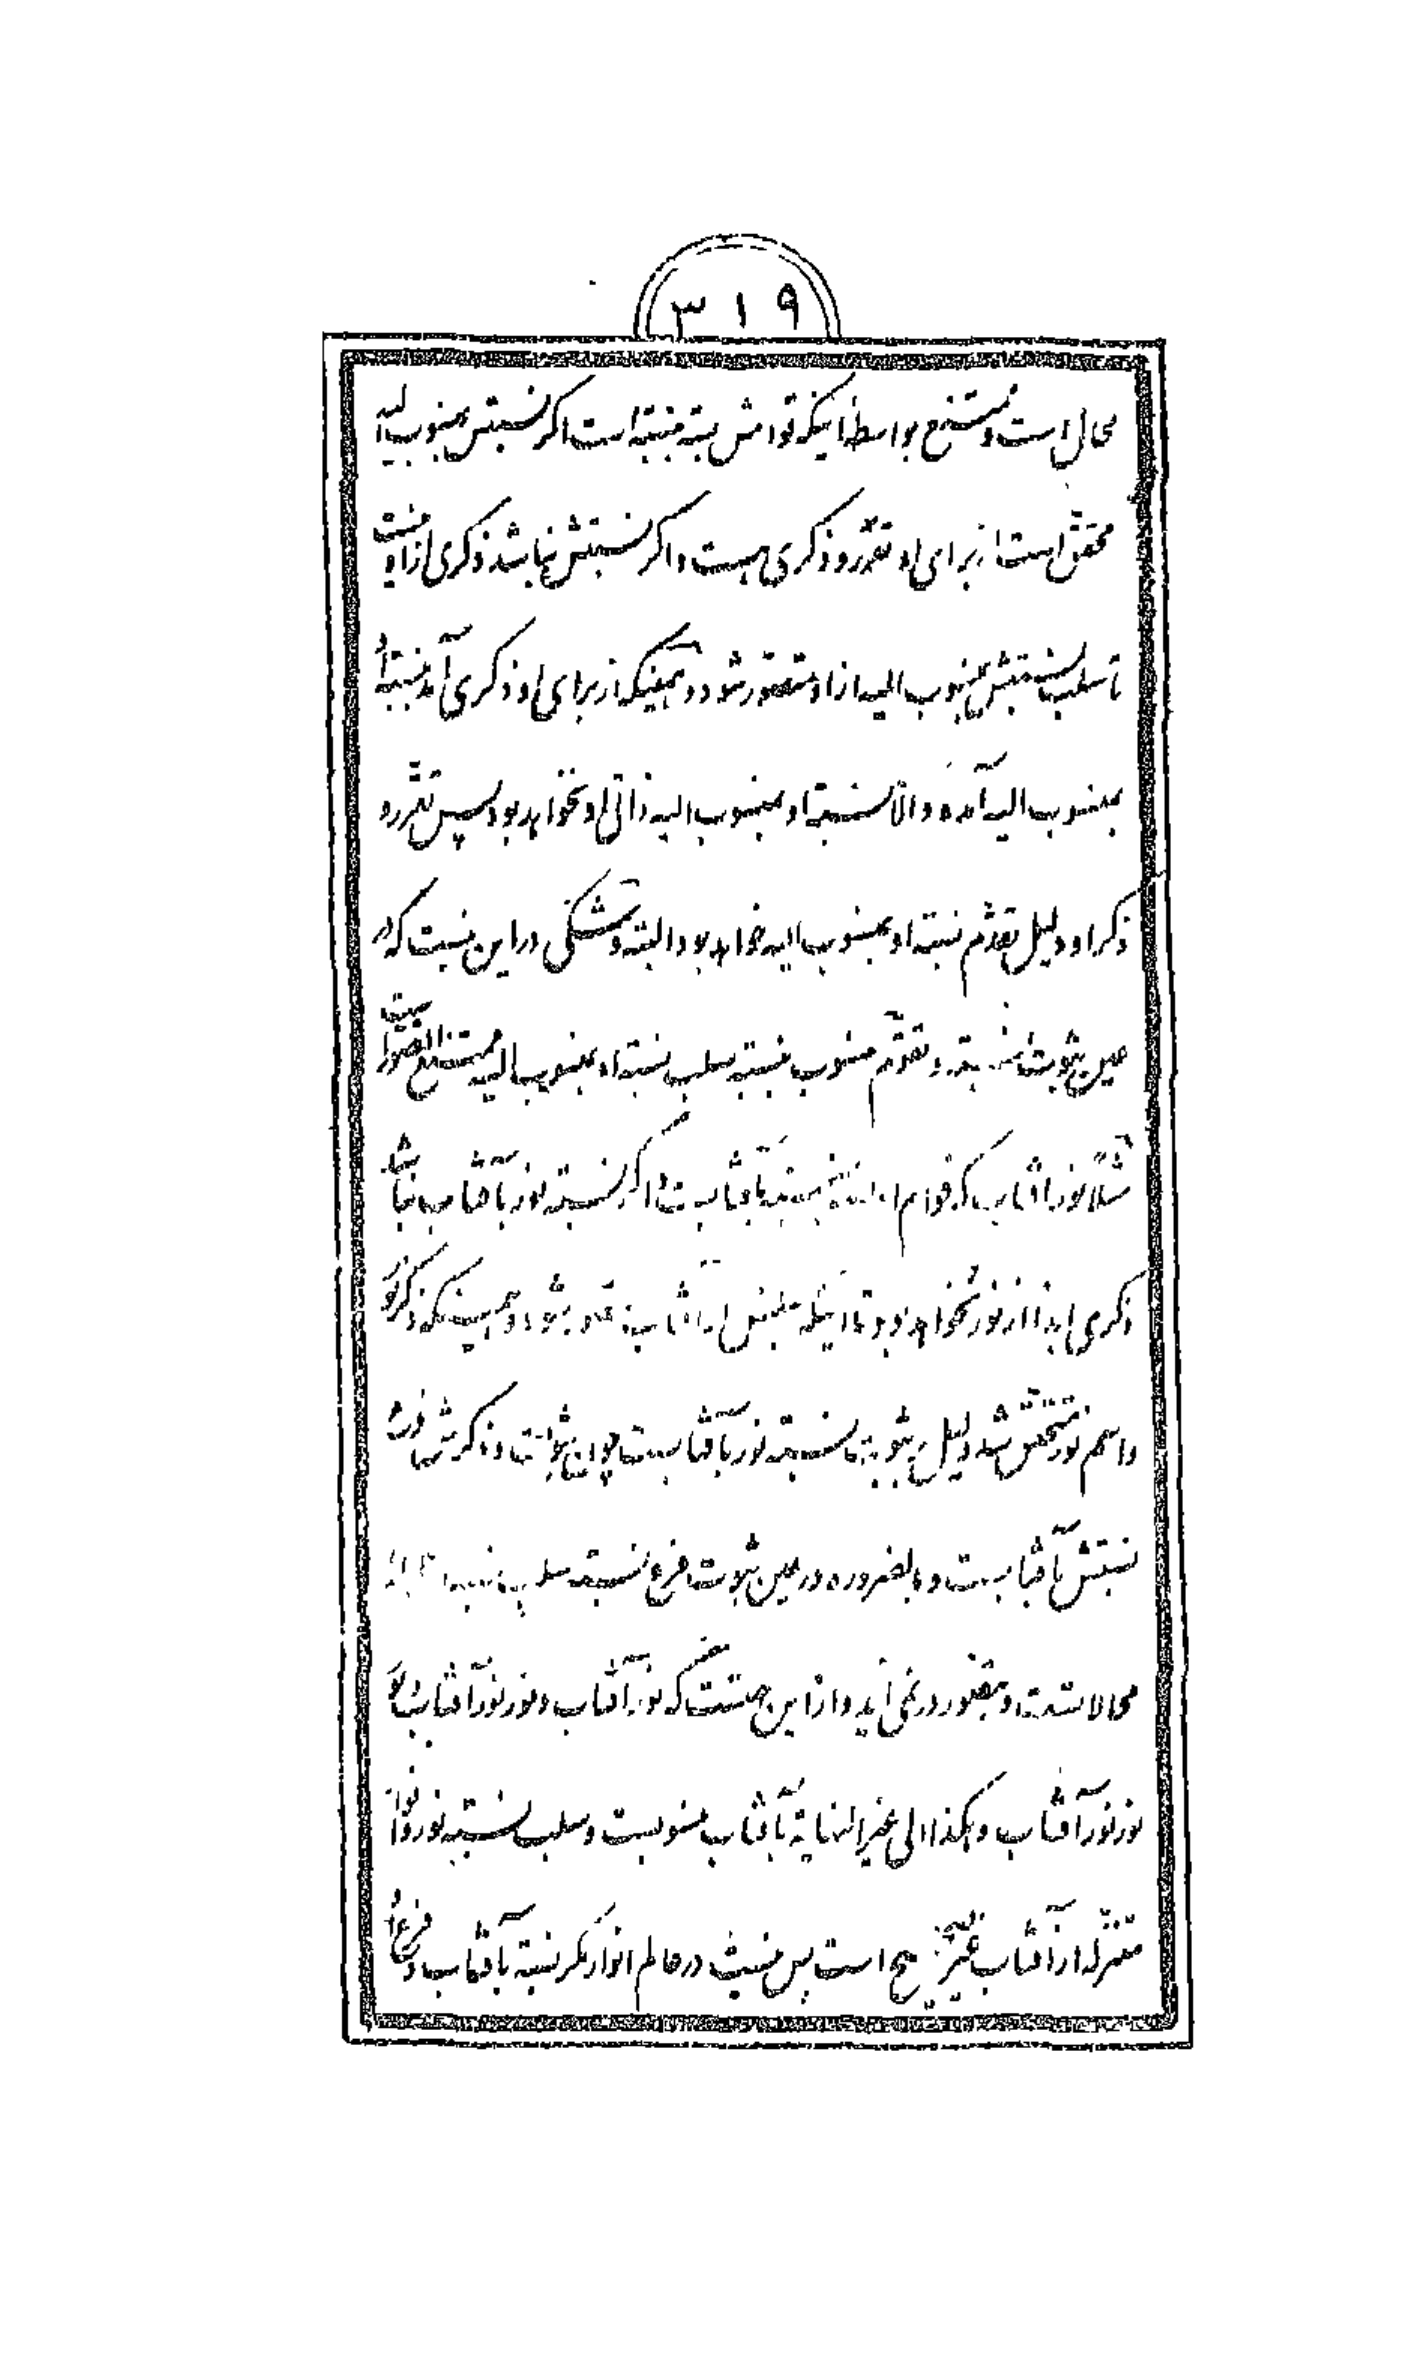 ۳۱۹
محال است و ممتنع بواسطهٔ اینکه قوامش بسته بنسبته است اگر نسبتش بمنسوب الیه
محقق است از برای او تقرر و ذکری هست و اگر نسبتش نباشد ذکری از او نیست
تا سلب نسبتش بمنسوب الیه از او متصور شود و همینکه از برای او ذکری آمد نسبته او
بمنسوب الیه آمده و الا نسبته او بمنسوب الیه ذاتی او نخواهد بود پس تقرر و
ذکر او دلیل تقدم نسبته او بمنسوب الیه خواهد بود البته و شکی در این نیست که در
عین ثبوت نسبته و تقدم منسوب بنسبته سلب نسبته او بمنسوب الیه ممتنع التصور است
مثلا نور آفتاب که قوام او بنسبته بآفتابست اگر نسبته نور بآفتاب نباشد
ذکری ابدا از نور نخواهد بود تا اینکه سلبش از آفتاب متصور شود و همینکه ذکر نور
و اسم نور متحقق شد دلیل ثبوت نسبته نور بآفتابست چون ثبوت و ذکرش فرع
نسبتش بآفتابست و بالضروره در عین ثبوت فرع نسبته سلب نسبته
محالاتست و بتصور در نمی آید و از این جهتست که نور آفتاب و نور نور آفتاب و نور
نور نور آفتاب و هکذا الی غیر النهایة بآفتاب منسوبست و سلب نسبته نور و انوار
متنزله از آفتاب غیر صحیح است پس نیست در عالم انوار مگر نسبته بآفتاب و فرع او